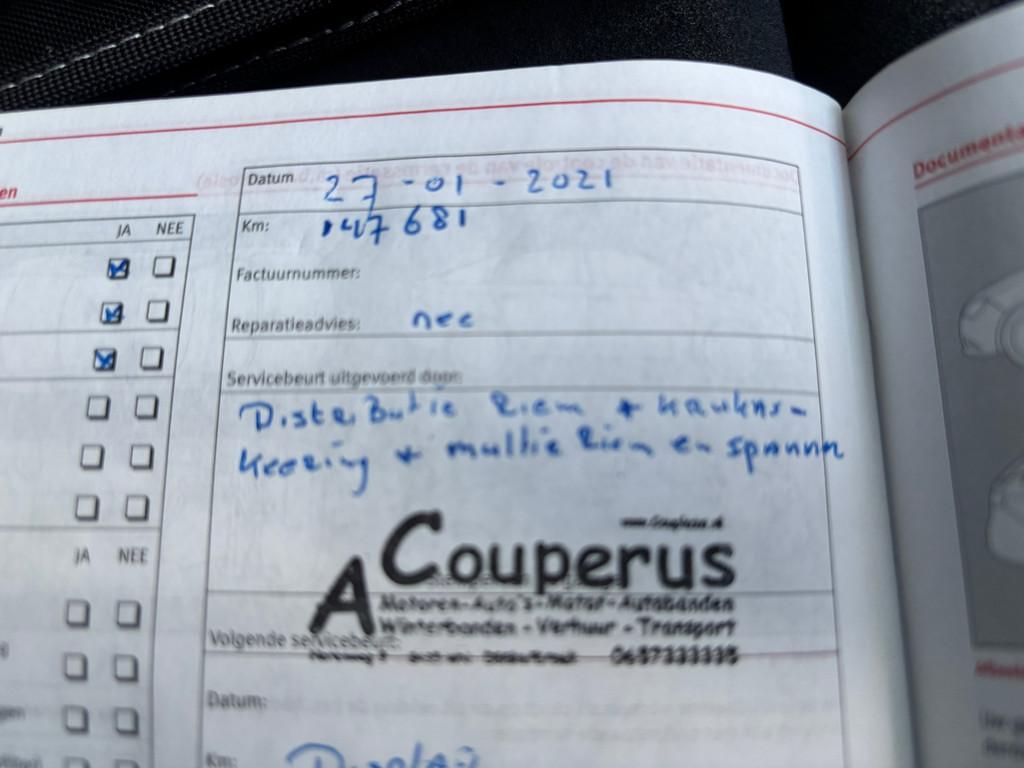 en
JA NEE
Datum 27-01-2021
Km: 147681
Factuurnummer:
Reparatieadvies: nee
Servicebeurt uitgevoerd door:
Distributie Riem +
Keering + multie Riem en
A Couperus
Motoren-Auto's-Motor-Autobanden
Winterbanden - Verhuur - Transport
0657333335
Volgende servicebeurt:
JA NEE
Datum:
Km:
Documenta